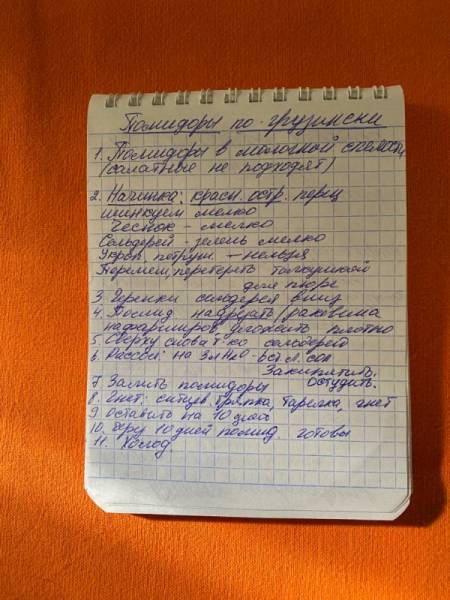 Помидоры по-грузински
1. Помидоры в молочной спелости
(салатные не подходят)
2. Начинка: красн. остр. перец
шинкуем мелко
Чеснок - мелко
Сельдерей - зелень мелко
Укроп, петруш. - нельзя
Перемеш, перетереть толкушкой
для пюре
3. Черенки сельдерея вниз
4. Помид надрезать/раковина
нафарширов, уложить плотно
5. Сверху снова т ко сельдерей
6. Рассол: на 3л H2O - 6ст л. сол
Закипятить.
Остудить.
7. Залить помидоры
8. Гнет: ситцев. тряпка, тарелка, гнет
9 Оставить на 10 дней
10. через 10 дней помид. готовы
11. Холод.